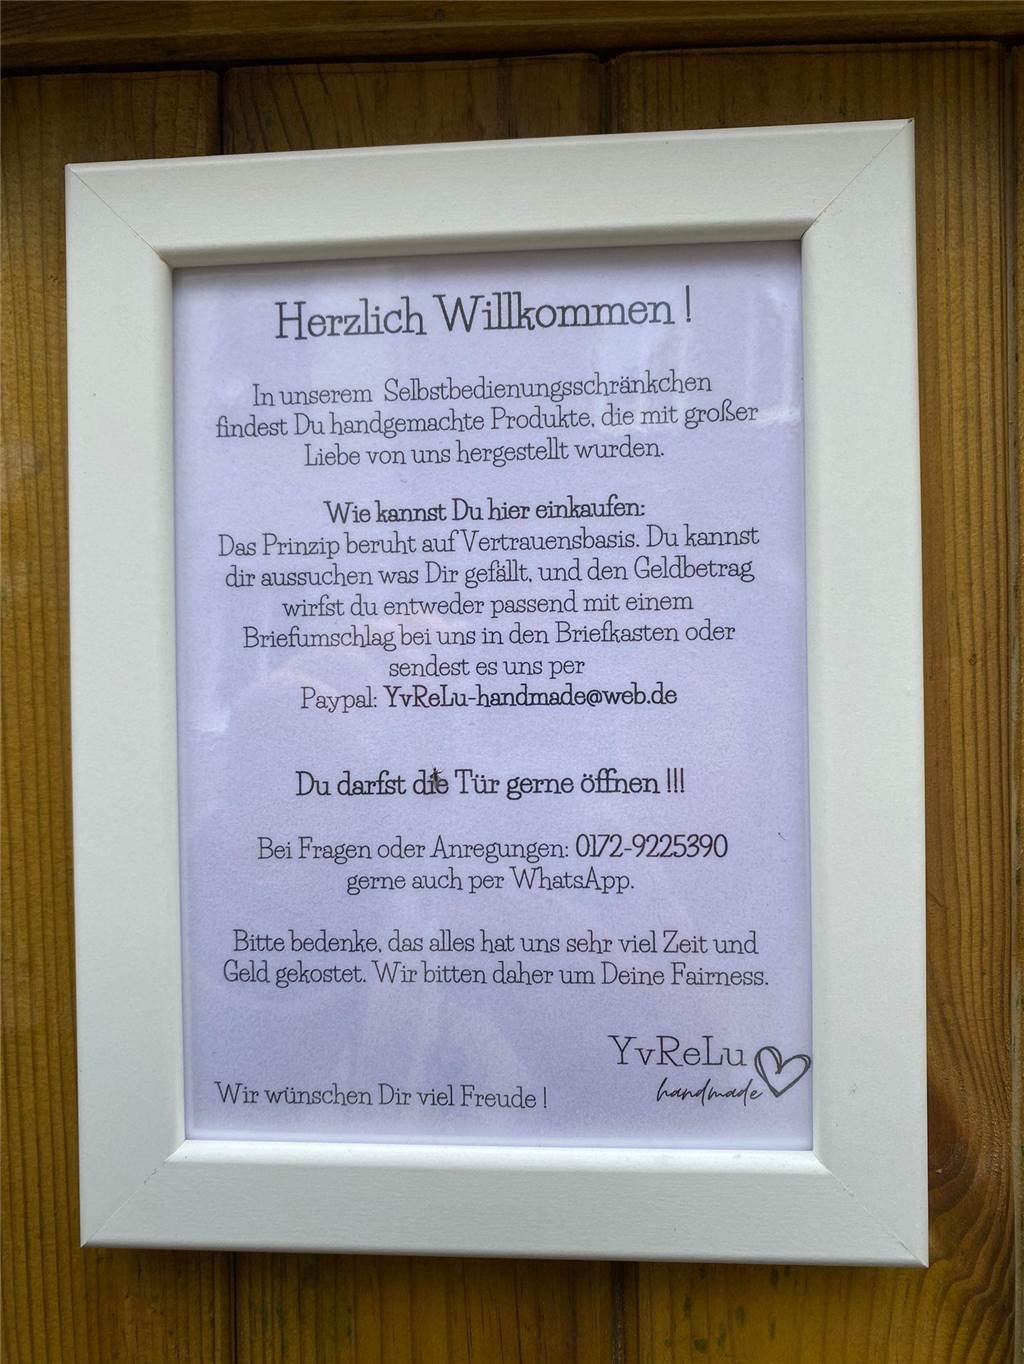 Herzlich Willkommen !
In unserem Selbstbedienungsschränkchen
findest Du handgemachte Produkte, die mit großer
Liebe von uns hergestellt wurden.
Wie kannst Du hier einkaufen:
Das Prinzip beruht auf Vertrauensbasis. Du kannst
dir aussuchen was Dir gefällt, und den Geldbetrag
wirfst du entweder passend mit einem
Briefumschlag bei uns in den Briefkasten oder
sendest es uns per
Paypal: YvReLu-handmade@web.de
Du darfst die Tür gerne öffnen !!!
Bei Fragen oder Anregungen: 0172-9225390
gerne auch per WhatsApp.
Bitte bedenke, das alles hat uns sehr viel Zeit und
Geld gekostet. Wir bitten daher um Deine Fairness.
YvReLu
handmade
Wir wünschen Dir viel Freude !